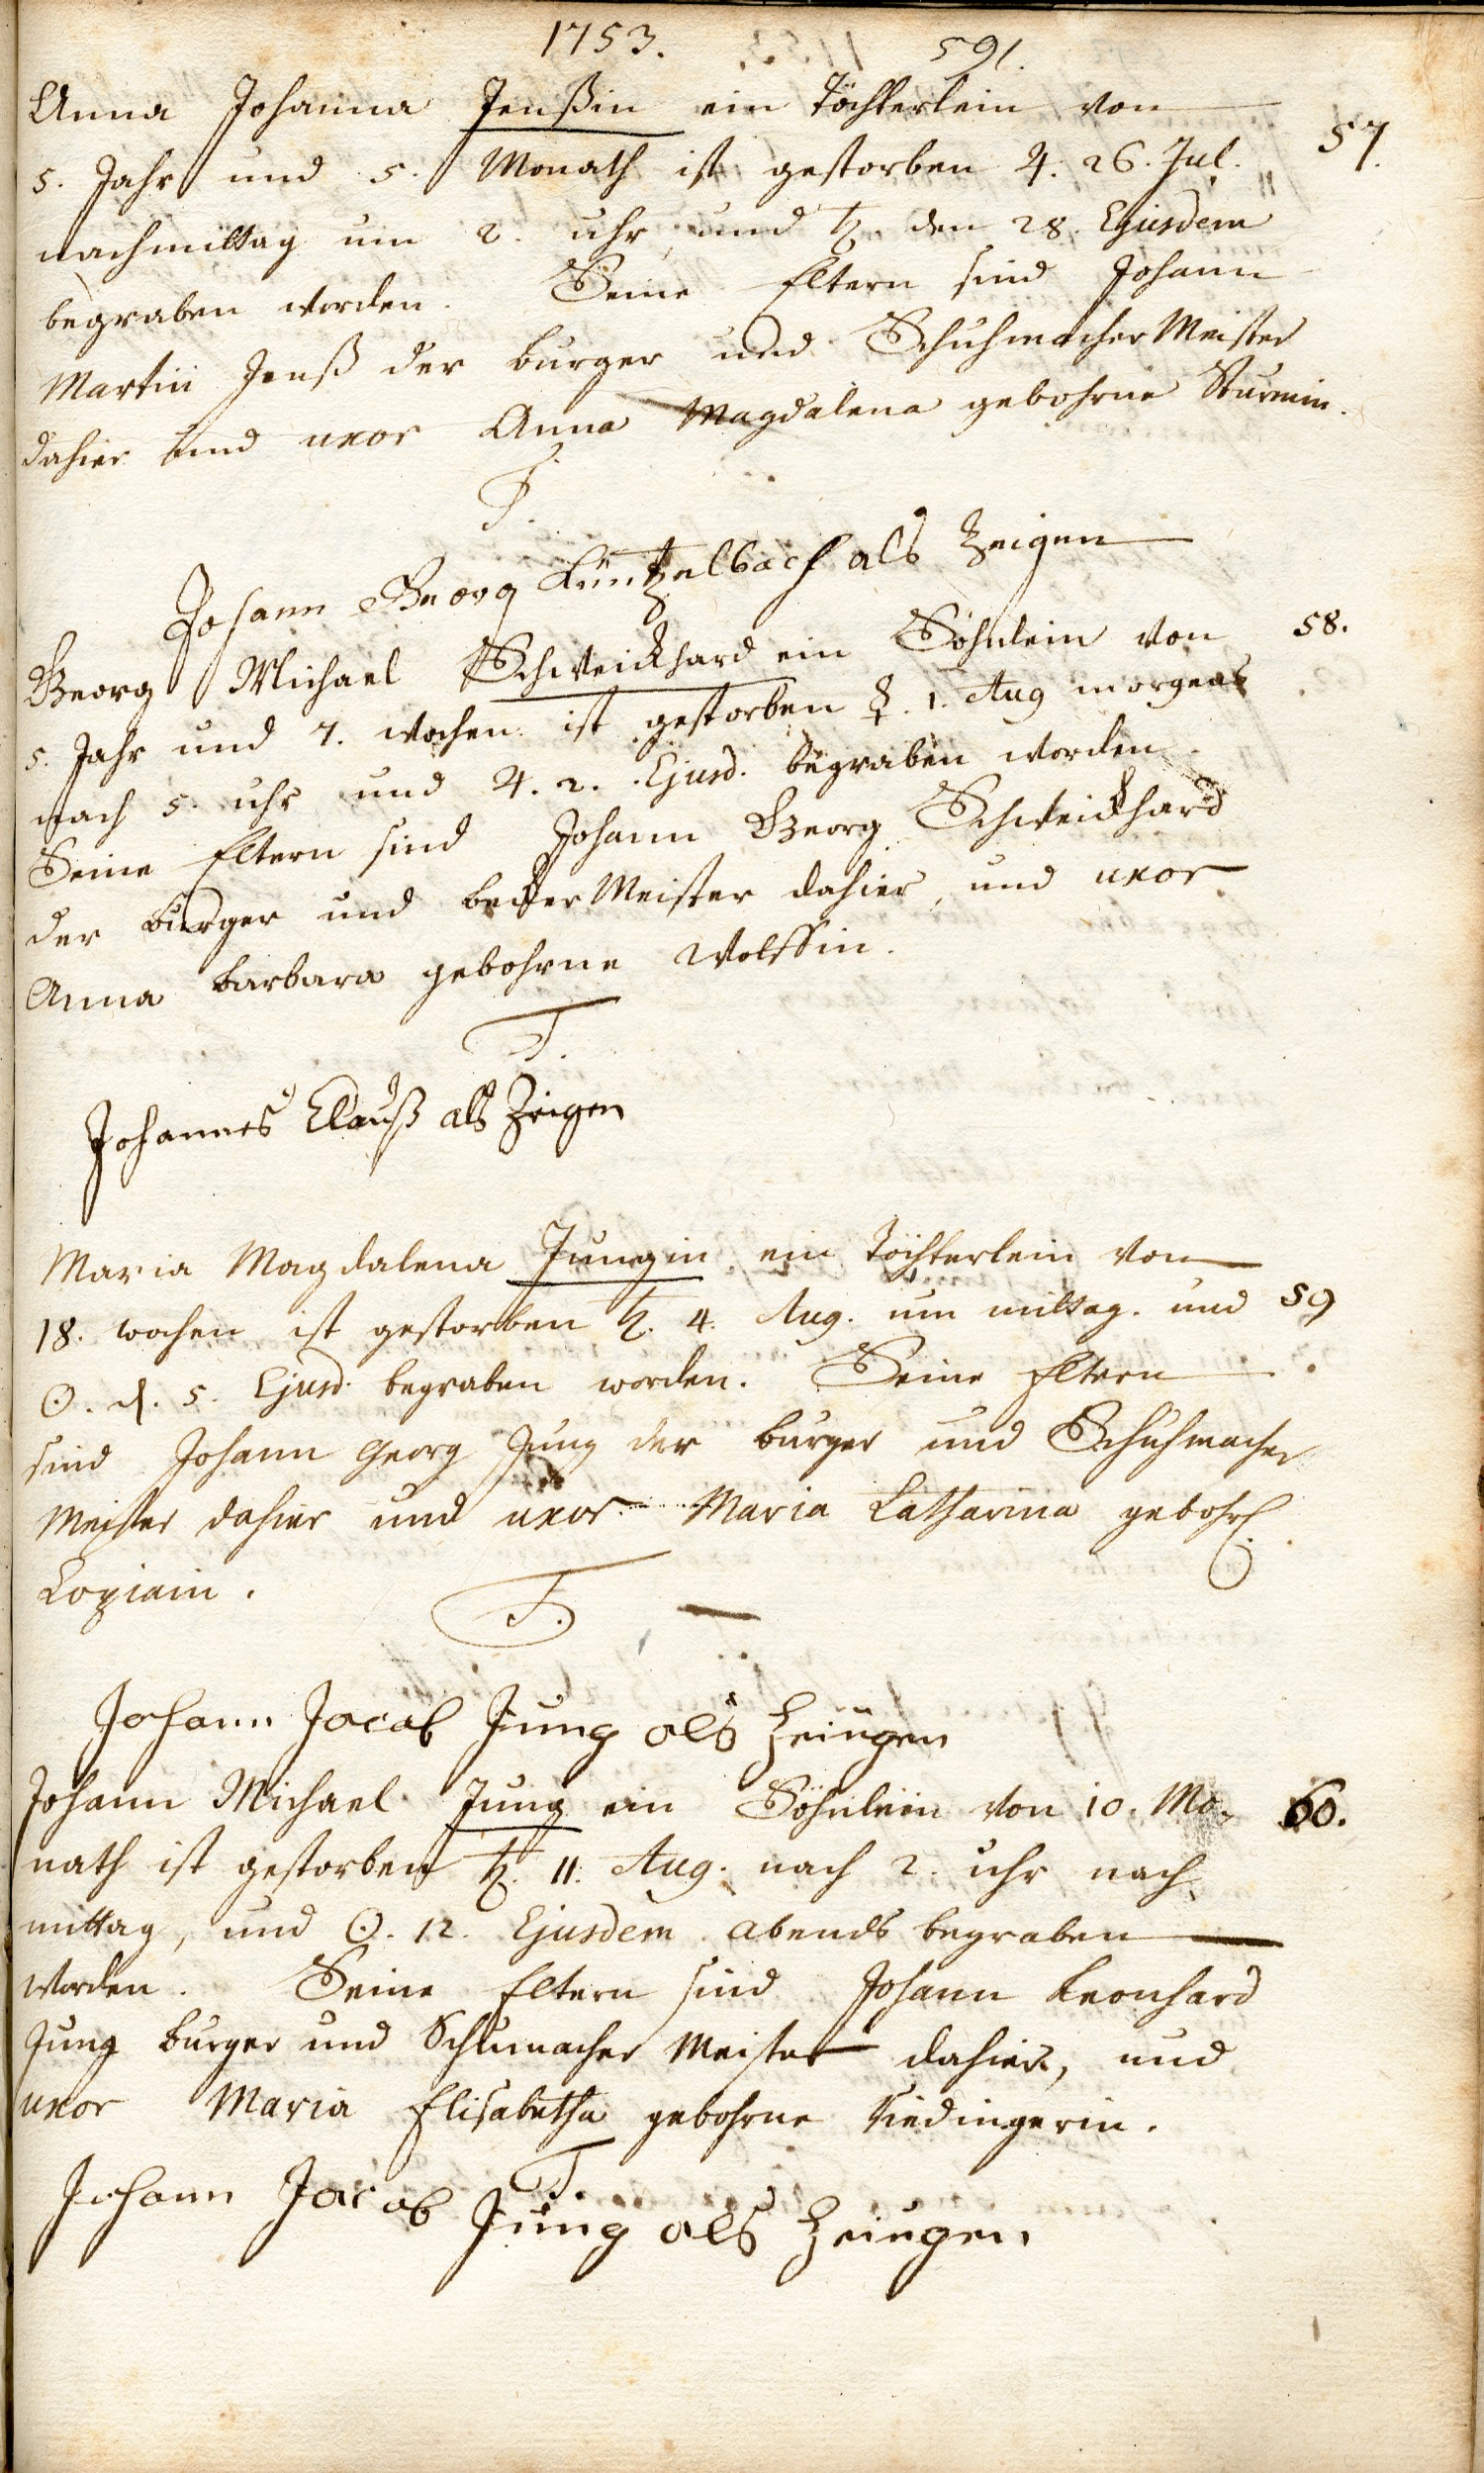 1753. 591.
Anna Johanna Jenßin ein Töchterlein von
5. Jahr und 5. Monath ist gestorben ♃. 26. Jul. 57.
nachmittag um 2. uhr, und ♄. den 28. Ejusdem
begraben worden. Seine Eltern sind Johann
Martin Jenß der burger und Schuhmacher Meister
dahier und uxor Anna Magdalena gebohrne Sturmin.
T.
Johann Georg Küntzelbach als Zeigen
Georg Michael Schweickhard ein Söhnlein von 58.
5. Jahr und 7. wochen ist gestorben ☿. 1. Aug morgens
nach 5. uhr und ♃. 2. Ejusd. begraben worden.
Seine Eltern sind Johann Georg Schweickhard
der burger und becker Meister dahier, und uxor
Anna barbara gebohrne Wolffin.
T.
Johannes Clauß als Zeigen
Maria Magdalena Jungin ein Töchterlein von
18. wochen ist gestorben ♄. 4. Aug. um mittag. und 59.
☉. d. 5. Ejusd. begraben worden. Seine Eltern
sind Johann Georg Jung der burger und Schuhmacher
Meister dahier und uxor Maria Catharina gebohrne
T.
Johann Jacob Jung als Zeiugen
Johann Michael Jung ein Söhnlein von 10. Mo- 60.
nath ist gestorben ♄. 11. Aug. nach 2. uhr nach
mittag, und ☉. 12. Ejusdem abends begraben
worden. Seine Eltern sind Johann Leonhard
Jung burger und Schumacher Meister dahier, und
uxor Maria Elisabetha gebohrne Riedingerin.
T.
Johann Jacob Jung als Zeiugen